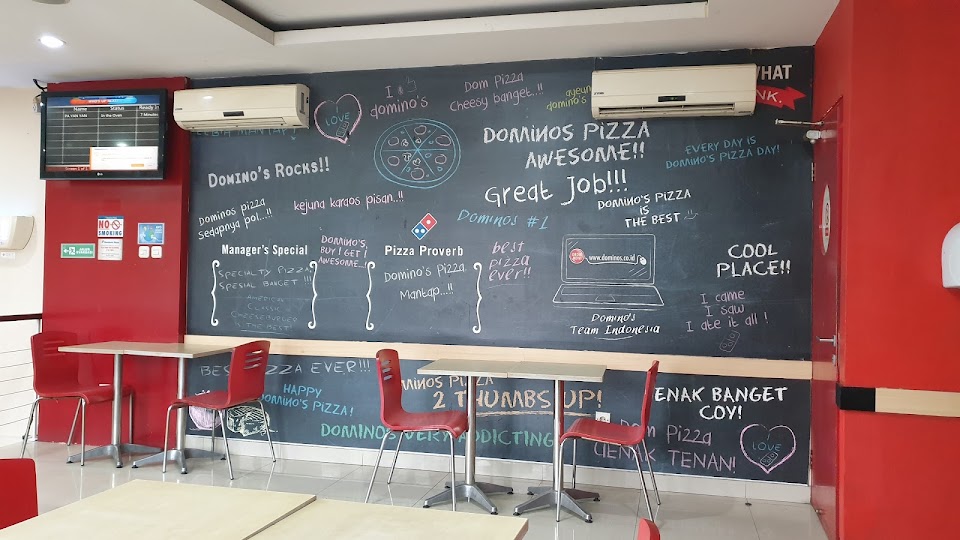 Name Status Ready In
PA YAN YAN In the Oven 7 Minutes
NO
SMOKING
I
domino's
LOVE
Dom Pizza
Cheesy banget..!!
ayeun
domino's
WHAT
NK.
DOMINOS PIZZA
AWESOME!!
EVERY DAY IS
DOMINO'S PIZZA DAY!
DOMINO'S ROCKS!!
Great Job!!!
Dominos pizza
sedapnya pol...!!
kejuna karaos pisan..!!
Dominos #1
DOMINO'S PIZZA
IS
THE BEST
Manager's Special
SPECIALTY PIZZA
SPESIAL BANGET !!!
AMERICAN
CLASSIC
CHEESEBURGER
THE BEST
DOMINO'S,
BUY 1 GET 1
AWESOME...!
Pizza Proverb
Domino's Pizza
Mantap...!!
best
pizza
ever!!
www.dominos.co.id
Domino's
Team Indonesia
COOL
PLACE!!
I came
I saw
I ate it all !
BEST PIZZA EVER!!!
HAPPY
DOMINO'S PIZZA!
DOMINOS PIZZA
2 THUMBS UP!
DOMINOS VERY ADDICTING
ENAK BANGET
COY!
Dom Pizza
UENAK TENAN!
LOVE